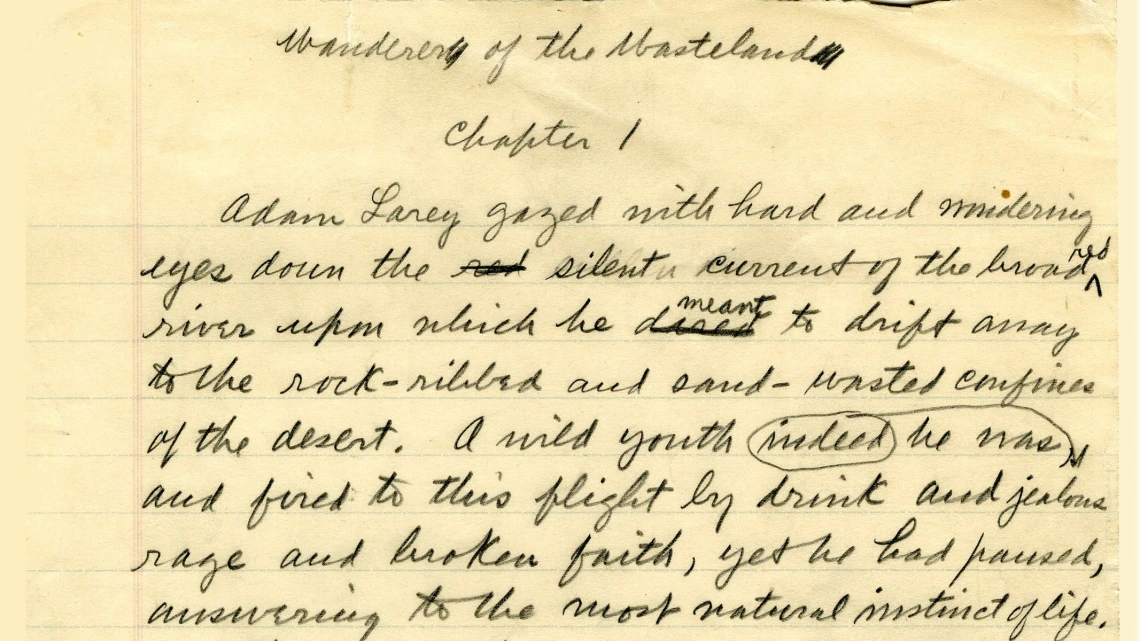 Wanderer of the Wasteland
Chapter 1
Adam Larey gazed with hard and wondering
eyes down the red silent current of the broad red
river upon which he dared meant to drift away
to the rock-ribbed and sand-wasted confines
of the desert. A wild youth indeed he was,
and fired to this flight by drink and jealous
rage and broken faith, yet he had paused,
answering to the most natural instinct of life.